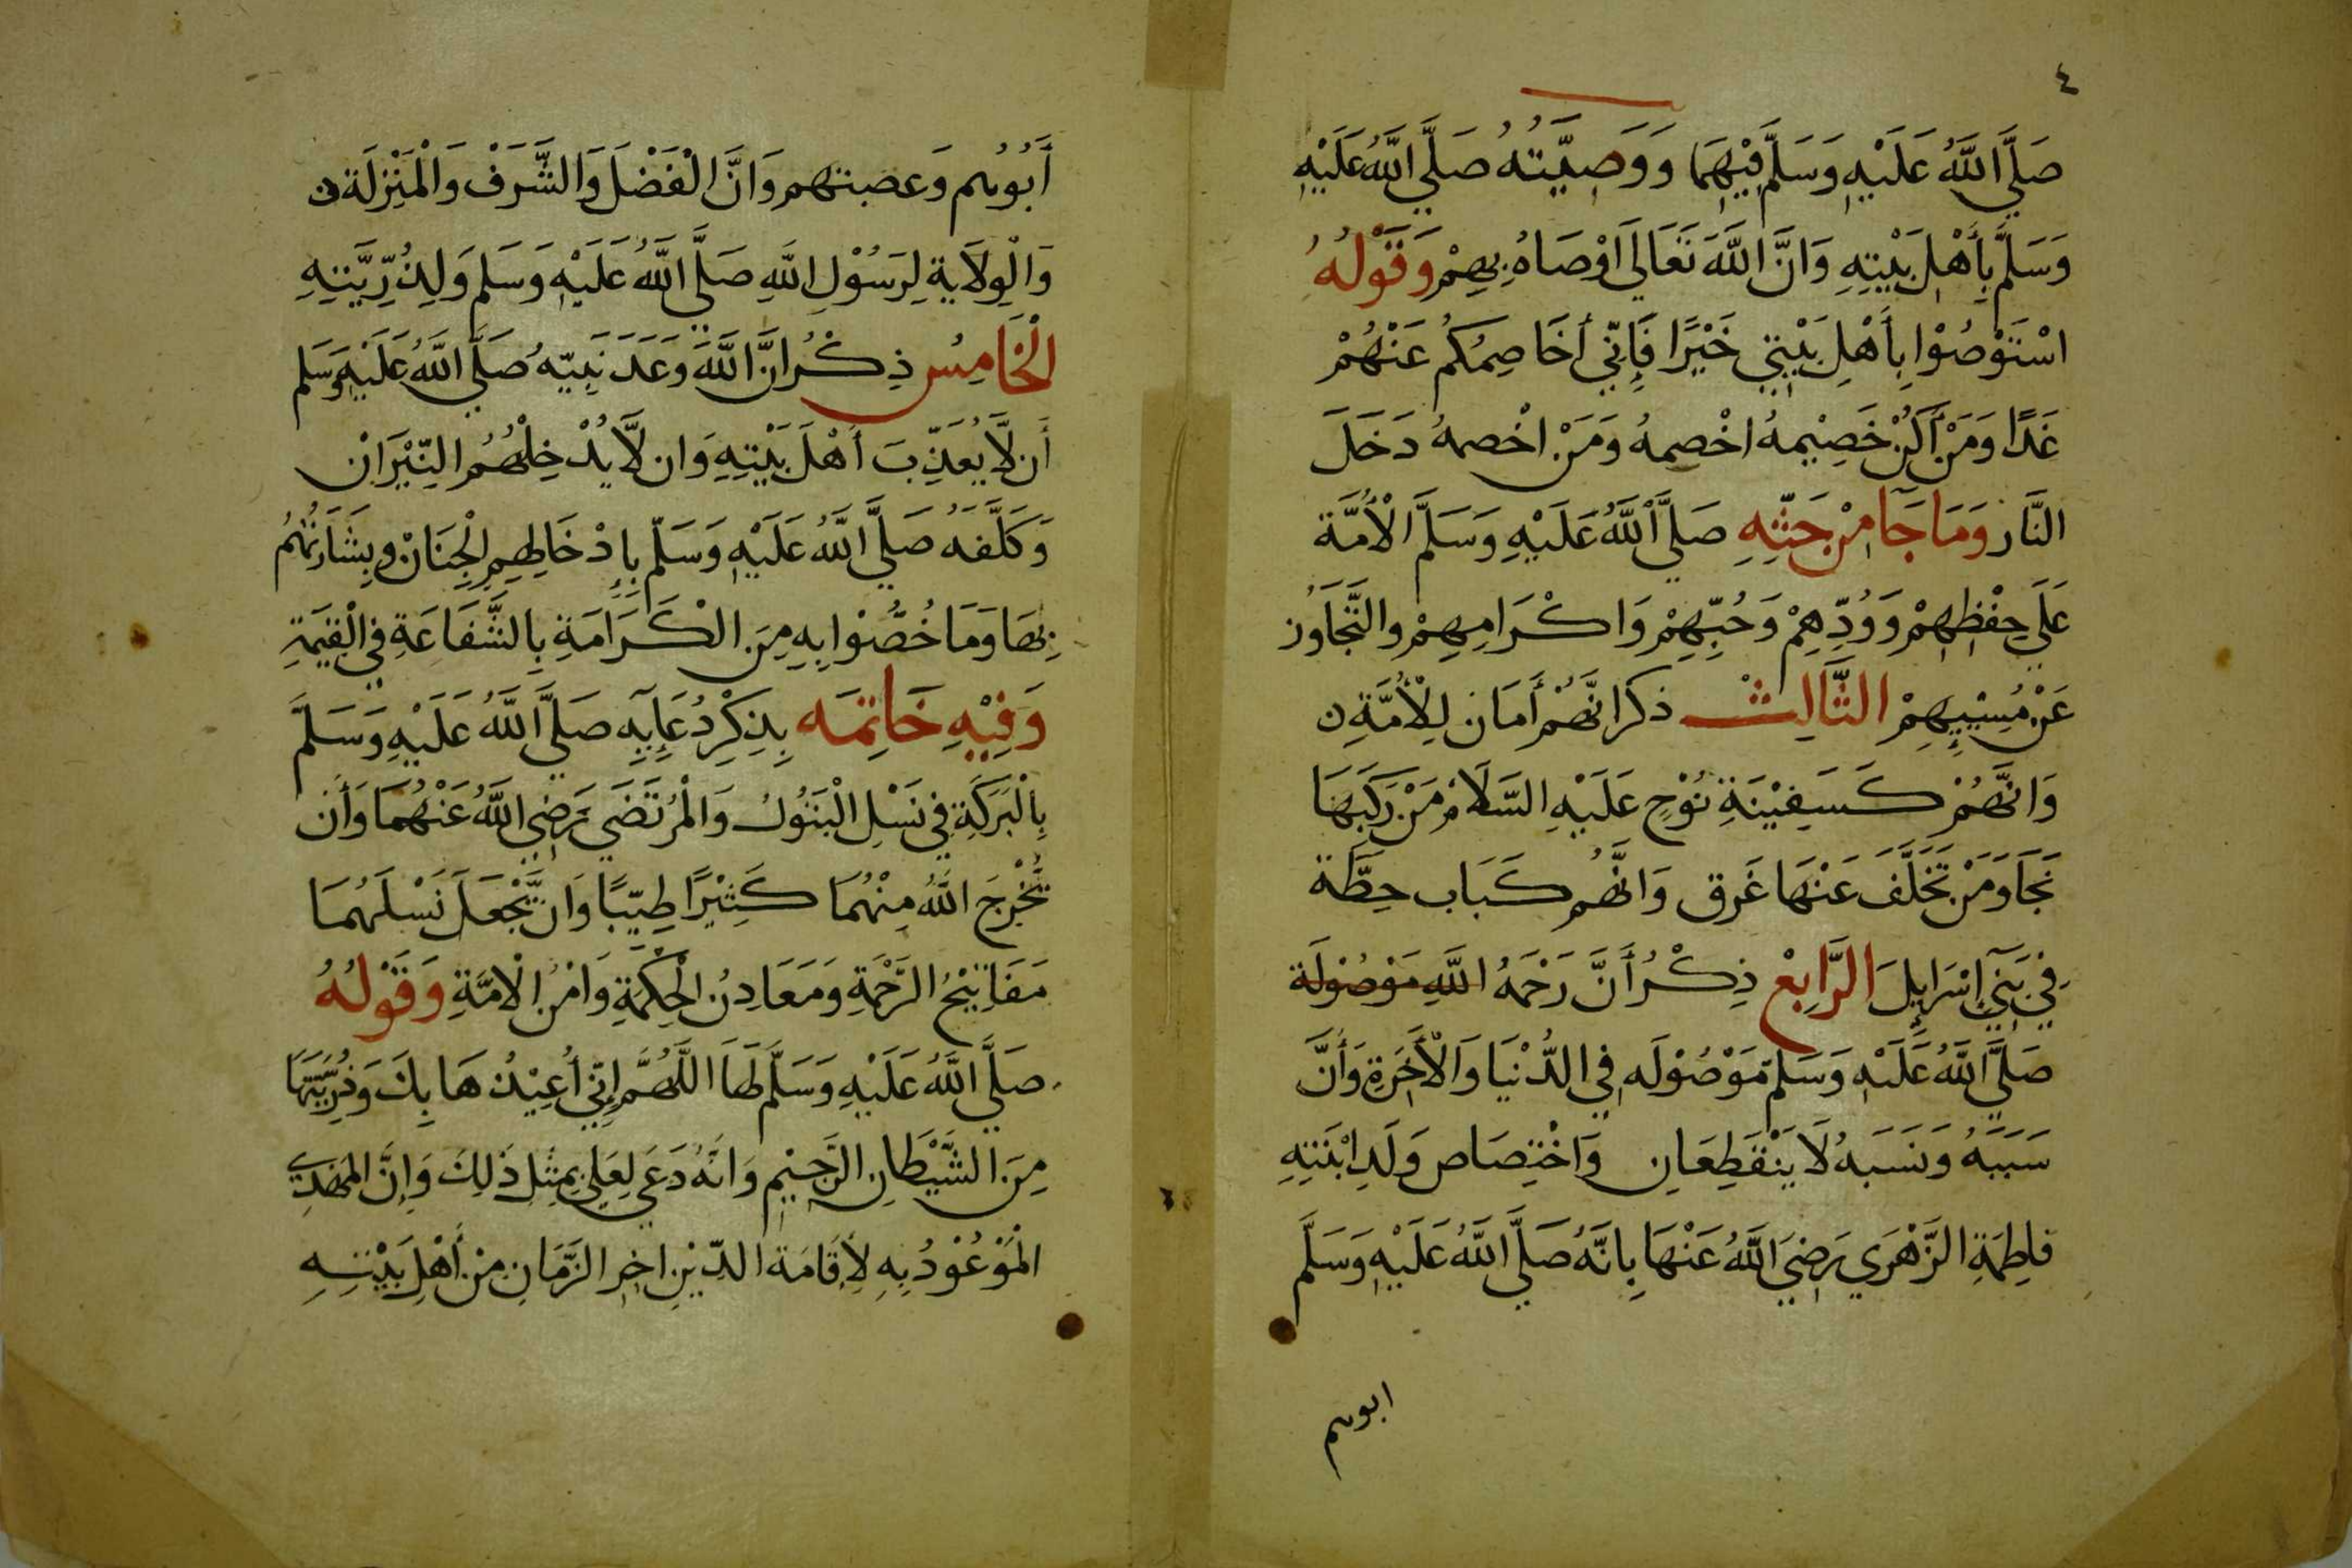 ٤
صَلَّي اللَّهُ عَلَيْهِ وَسَلَّمَ فِيْهِمَا وَوَصِيَّتُهُ صَلَّي اللَّهُ عَلَيْهِ
وَسَلَّمَ بِأَهْلِ بَيْتِهِ وَانَّ اللَّهَ تَعَالَى اوْصَاهُ بِهِمْ وَقَوْلُهُ
اسْتَوْصُوْا بِأَهْلِ بَيْتِي خَيْرًا فَإِنِّي أُخَاصِمُكُمْ عَنْهُمْ
غَدًا وَمَنْ أَكُنْ خَصِيْمهُ اخْصِمهُ وَمَنْ اخْصمهُ دَخَلَ
النَّار وَمَا جَآ مِنْ حَثِّهِ صَلَّى اللَّهُ عَلَيْهِ وَسَلَّمَ الْأُمَّة
عَلَي حِفْظِهِمْ وَوُدِّهِمْ وَحُبِّهِمْ وَاكْرَامِهِمْ والتَّجَاوُز
عَنْ مُسِيْئِهِمْ الثَّالِثْ ذكرُ انَّهُمْ أَمَان لِلْأُمَّةِ
وَانَّهُمْ كَسَفِيْنَةِ نُوْحٍ عَلَيْهِ السَّلَامْ مَنْ رَكَبَهَا
نَجَا وَمَنْ تَخَلَّفَ عَنْهَا غَرِق وَانَّهُم كَبَاب حِطَّة
فِي بَنِيٓ إِسْرَايِلَ الرَّابِعْ ذِكْرُ أَنَّ رَحْمَهُ اللَّهِ مَوْصُوْلَة
صَلَّي اللَّهُ عَلَيْهِ وَسَلَّمَ مَوْصُوْلَه فِي الدُّنْيَا وَالْأَخِرَةِ وَأَنَّ
سَبَبَهُ وَنَسَبَهُ لَا يَنْقَطِعَانِ وَاخْتِصَاص وَلَدِ ابْنَتِهِ
فاطِمَةِ الزَّهْرَي رَضِيَ اللَّهُ عَنْهَا بِانَّهُ صَلَّي اللَّهُ عَلَيْهِ وَسَلَّمَ
ابوهم
أَبُوهُم وَعصبتهم وَانَّ الْفَضْلَ وَالشَّرَفْ وَالْمَنْزِلَة
وَالْوِلَايةِ لِرَسُوْلِ اللَّهِ صَلَّي اللَّهُ عَلَيْهِ وَسَلم وَلِذُرِّيَّتِهِ
الْخَامِسُ ذِكْرُ انَّ اللَّهَ وَعَدَ نَبِيّهُ صَلَّي اللَّهُ عَلَيْهِ وَسَلم
أَن لَّا يُعَذِّبَ أَهْلَ بَيْتِهِ وَان لَّا يُدْخِلَهُمُ النِّيْرَانْ
وَكَلَّفَهُ صَلَّي اللَّهُ عَلَيْهِ وَسَلَّمَ بِإِدْخَالِهِم الْجِنَانْ وبِشَارَتُهُم
بِهَا وَمَا خُصُّوْا بِهِ مِنَ الْكَرَامَةِ بِالشَّفَاعَةِ فِي الْقِيَمَةِ
وَفِيْهِ خَاتِمَه بِذِكْرِ دُعَائِهِ صَلَّي اللَّهُ عَلَيْهِ وَسَلَّمَ
بِالْبَرَكَةِ فِي نَسْلِ الْبَتُوْل وَالْمُرْتَضَي رَضِي اللَّهُ عَنْهُمَا وَأَن
يُّخْرِجَ اللَّهُ مِنْهُمَا كَثِيْرًا طِيِّبًا وَان يَّجْعَلَ نَسْلَهُمَا
مَفَاتِيْحُ الرَّحْمَةِ وَمَعَادِنُ الْحِكْمَةِ وَامْنُ الْامَّةِ وَقَوْلُهُ
صَلَّي اللَّهُ عَلَيْهِ وَسَلَّمَ لَهَا اللَّهُمَّ إِنِّي أُعِيْذُهَا بِكَ وَذُرِّيَّتَهَا
مِنَ الشَّيْطَانِ الرَّجِيْمِ وَانَّهُ دَعَي لِعَلِي بِمِثْلِ ذَلِكَ وَإِنَّ المَهْدِي
الْمَوْعُوْدُ بِهِ لِأَقَامَة الدِّيْنِ اخِر الزَّمَانِ مِنْ أَهْلِ بَيْتِهِ